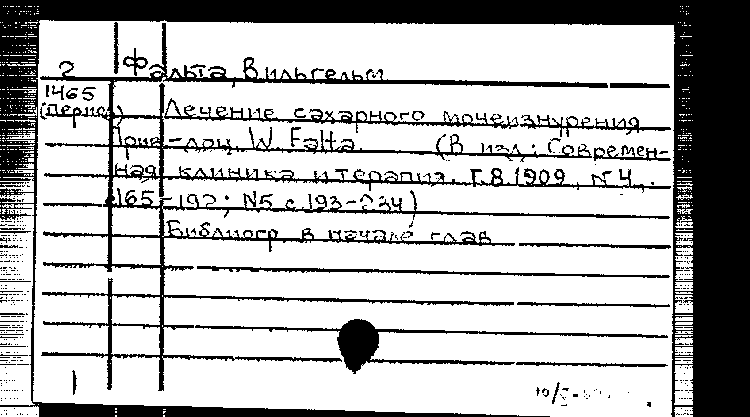 2 Фальта, Вильгельм
1465
(Период) Лечение сахарного мочеизнурения
Прив-доц. W. Falta. (В изд.: Современ-
ная клиника и терапия. Г.8. 1909, N 4,
с.165-192; N5 с.193-234)
Библиогр. в начале глав
1